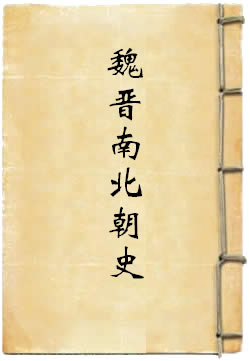 魏晋南北朝史